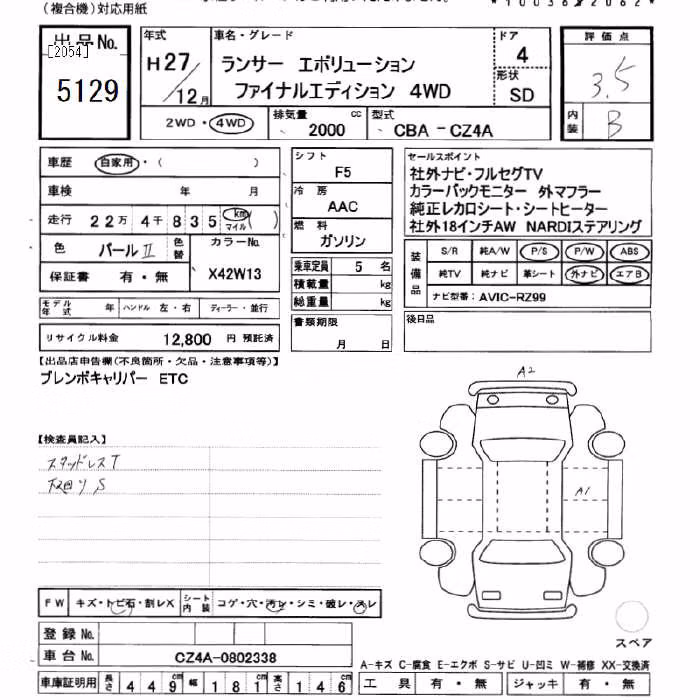 (複合機)対応用紙
*10036*2062*
出品No.
[2054]
5129
年式
H27/12月
車名・グレード
ランサー エボリューション
ファイナルエディション 4WD
ドア
4
形状
SD
評価点
3.5
内装
B
2WD・4WD
排気量
2000 cc
型式
CBA-CZ4A
車歴 自家用・( )
車検 年 月
走行 22万4千835 km マイル ( )
色 パールⅡ 色替
カラーNo.
X42W13
保証書 有・無
モデル年式 年 ハンドル 左・右 ディーラー・並行
リサイクル料金 12,800 円 預託済
シフト
F5
冷房
AAC
燃料
ガソリン
乗車定員 5 名
積載量 kg
総重量 kg
書類期限
月 日
セールスポイント
社外ナビ・フルセグTV
カラーバックモニター 外マフラー
純正レカロシート・シートヒーター
社外18インチAW NARDIステアリング
装備品
S/R 純A/W P/S P/W ABS
純TV 純ナビ 革シート 外ナビ エアB
ナビ型番: AVIC-RZ99
後日品
【出品店申告欄(不良箇所・欠品・注意事項等)】
ブレンボキャリパー ETC
【検査員記入】
スタッドレスT
下廻りS
A2
A1
スペア
FW キズ・トビ石・割レX シート内装 コゲ・穴・汚レ・シミ・破レ・スレ
登録No.
車台No. CZ4A-0802338
車庫証明用 長さ 449cm 幅 181cm 高さ 146cm
A-キズ C-腐食 E-エクボ S-サビ U-凹ミ W-補修 XX-交換済
工具 有・無 ジャッキ 有・無